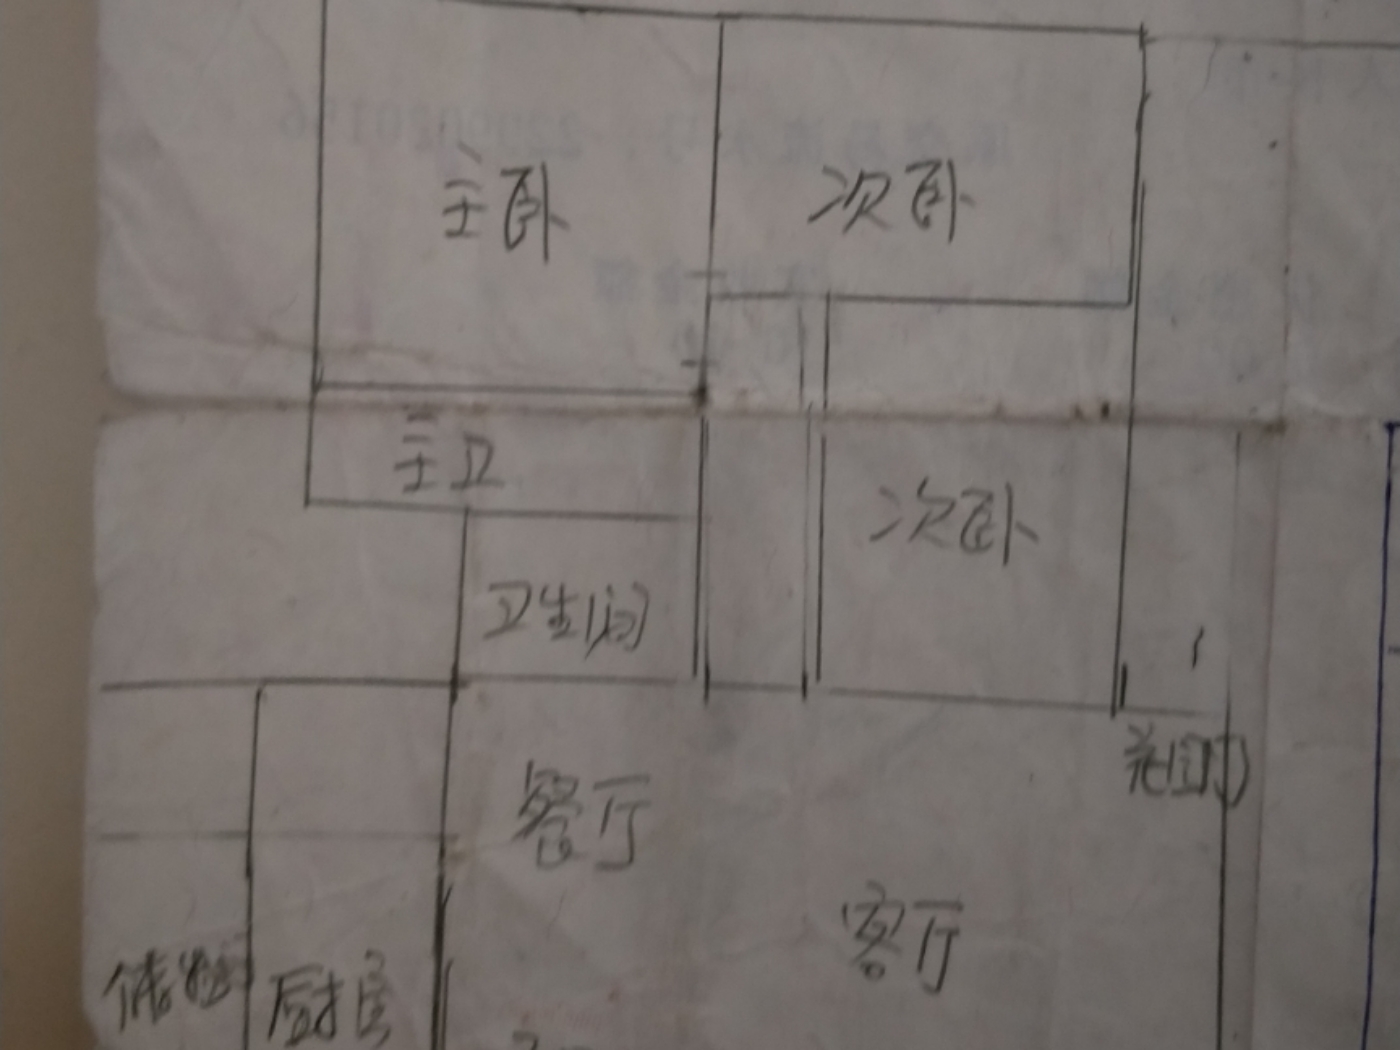 主卧
次卧
主卫
次卧
卫生间
客厅
客厅
厨房